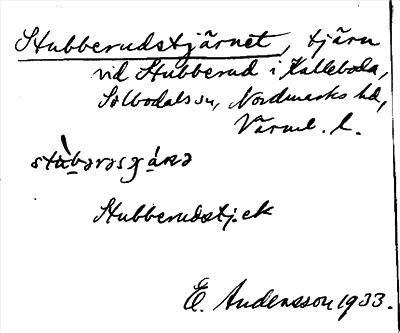 Stubberudstjärnet, tjärn
vid Stubberud i Kalleboda,
Silbodals sn, Nordmarks hd,
Värml. l.
Stubberudstj. ek
E. Andersson 1933.